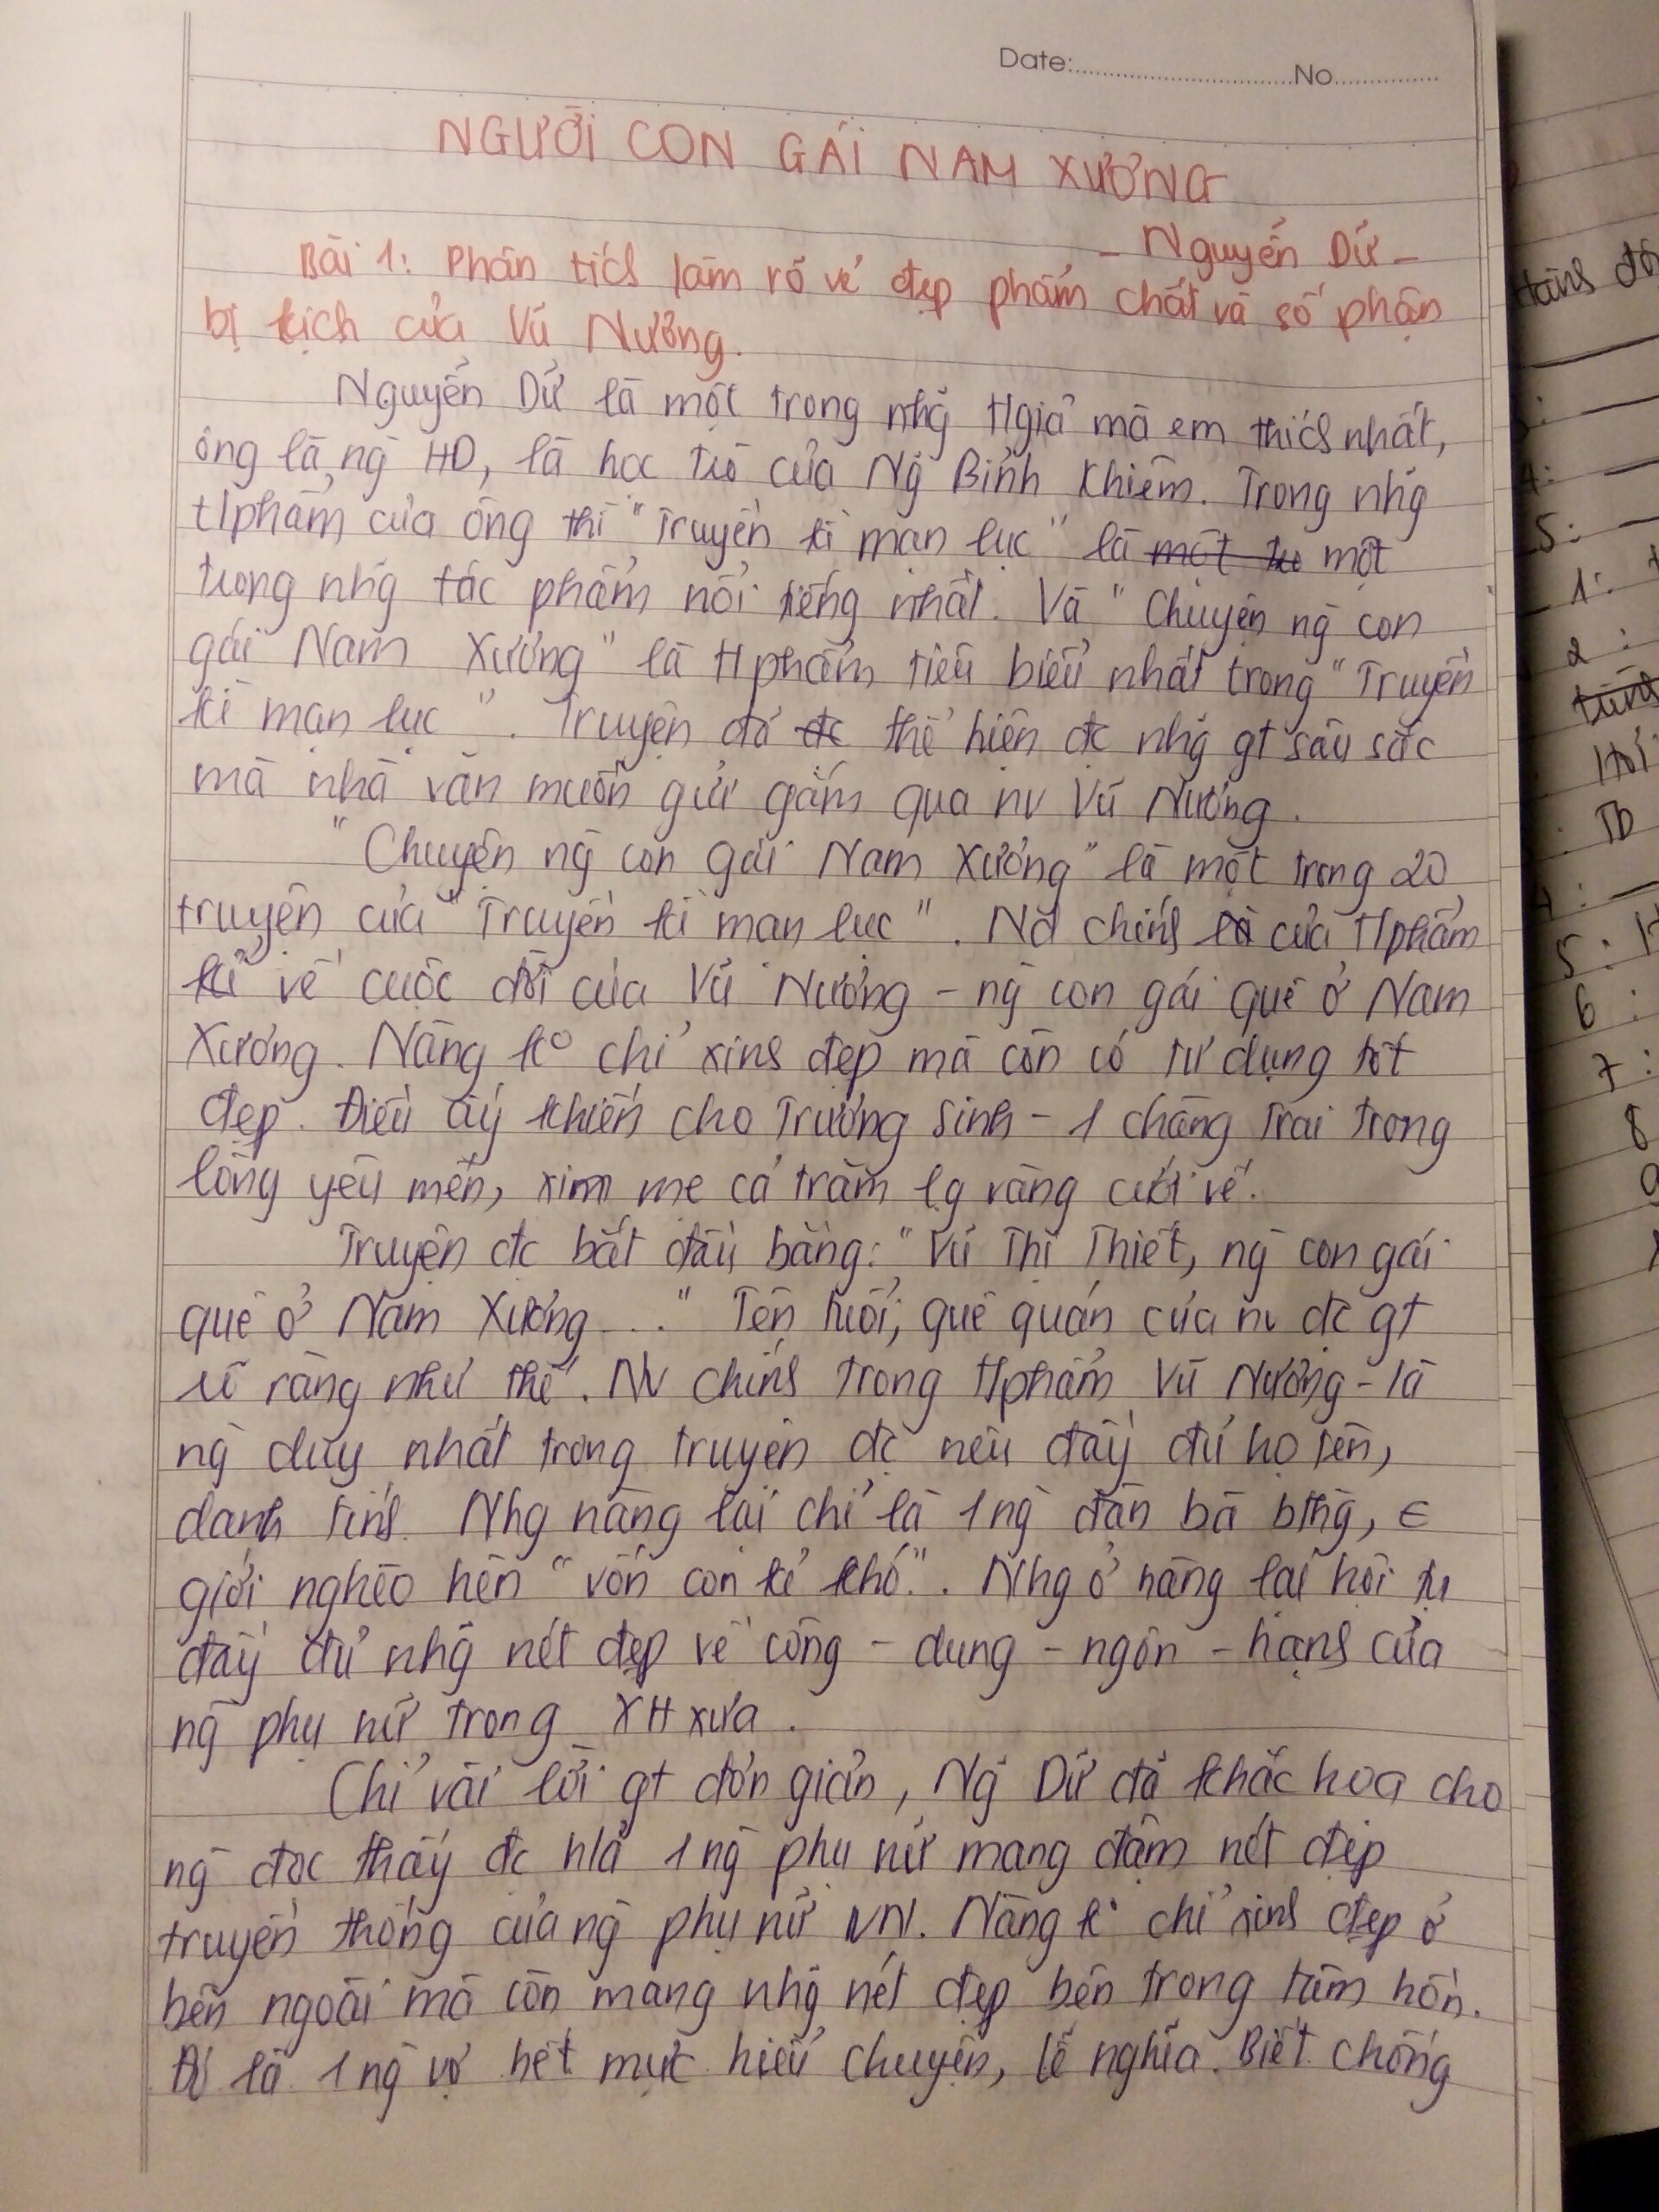 Date: No
NGƯỜI CON GÁI NAM XƯƠNG
- Nguyễn Dữ -
Bài 1: Phân tích làm rõ vẻ đẹp phẩm chất và số phận
bị kịch của Vũ Nương.
Nguyễn Dữ là một trong nhg t/giả mà em thích nhất,
ông là ng HD, là học trò của Ng Bỉnh Khiêm. Trong nhg
t/phẩm của ông thì "Truyền kì mạn lục" là một
trong nhg tác phẩm nổi tiếng nhất. Và "Chuyện ng con
gái Nam Xương" là t/phẩm tiêu biểu nhất trong "Truyền
kì mạn lục". Truyện đã thể hiện đc nhg gt sâu sắc
mà nhà văn muốn gửi gắm qua nv Vũ Nương.
"Chuyện ng con gái Nam Xương" là một trong 20
truyện của "Truyền kì mạn lục". Nd chính của t/phẩm
kể về cuộc đời của Vũ Nương - ng con gái quê ở Nam
Xương. Nàng ko chỉ xinh đẹp mà còn có tư dung tốt
đẹp. Điều ấy khiến cho Trương Sinh - 1 chàng trai trong
lòng yêu mến, xin mẹ cả trăm lg vàng cưới về.
Truyện đc bắt đầu bằng: "Vũ Thị Thiết, ng con gái
quê ở Nam Xương..." Tên tuổi, quê quán của nv đc gt
rõ ràng như thế. Nv chính trong t/phẩm Vũ Nương - là
ng duy nhất trong truyện đc nêu đầy đủ họ tên,
danh tính. Nhg nàng lại chỉ là 1 ng đàn bà bthg, ∈
giới nghèo hèn "vốn con kẻ khó". Nhg ở nàng lại hội tụ
đầy đủ nhg nét đẹp về công - dung - ngôn - hạnh của
ng phụ nữ trong XH xưa.
Chỉ vài lời gt đơn giản, Ng Dữ đã khắc họa cho
ng đọc thấy đc h/ả 1 ng phụ nữ mang đậm nét đẹp
truyền thống của ng phụ nữ VN. Nàng ko chỉ xinh đẹp ở
bên ngoài mà còn mang nhg nét đẹp bên trong tâm hồn.
Đó là 1 ng vợ hết mực hiểu chuyện, lễ nghĩa. Biết chồng
5:
1:
2:
TD
5:
6:
7:
8